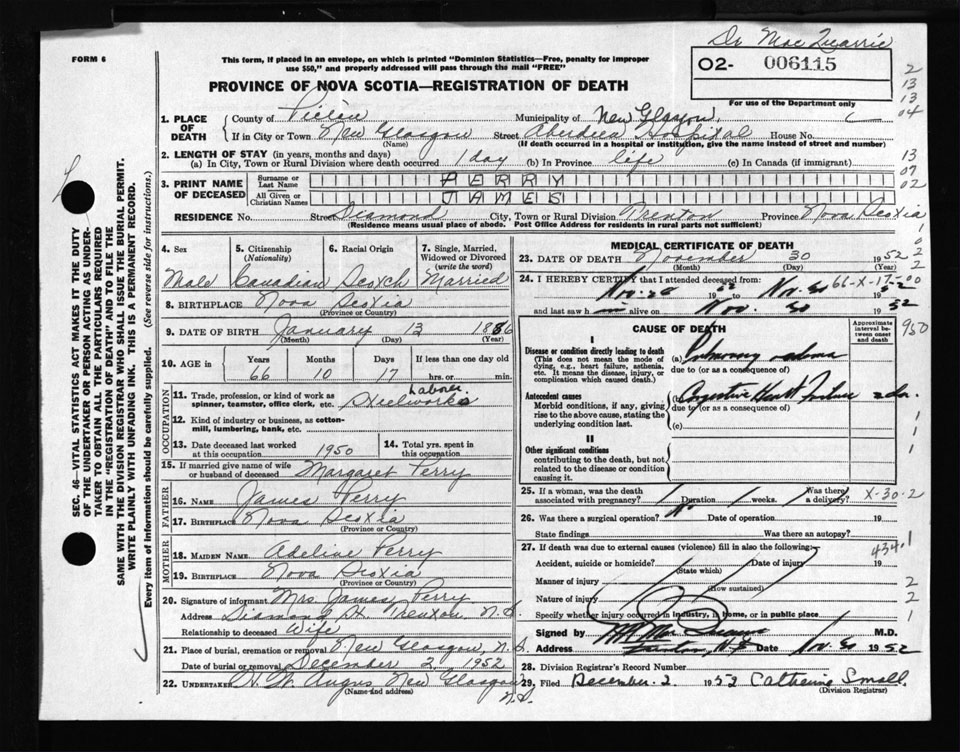 Dr Mac Quarrie
FORM 6
This form, if placed in an envelope, on which is printed "Dominion Statistics—Free, penalty for improper
use $50," and properly addressed will pass through the mail "FREE"
O2- 006115
For use of the Department only
PROVINCE OF NOVA SCOTIA—REGISTRATION OF DEATH
2
13
13
04
1. PLACE OF DEATH
County of Pictou Municipality of New Glasgow
If in City or Town New Glasgow Street Aberdeen Hospital House No.
(Name) (If death occurred in a hospital or institution, give the name instead of street and number)
2. LENGTH OF STAY (in years, months and days)
(a) In City, Town or Rural Division where death occurred 1 day (b) In Province life (c) In Canada (if immigrant)
13
07
02
3. PRINT NAME OF DECEASED
Surname or Last Name PERRY
All Given or Christian Names JAMES
RESIDENCE No. Street Diamond City, Town or Rural Division Trenton Province Nova Scotia
(Residence means usual place of abode. Post Office Address for residents in rural parts not sufficient)
SEC. 46—VITAL STATISTICS ACT MAKES IT THE DUTY
OF THE UNDERTAKER OR PERSON ACTING AS UNDER-
TAKER TO OBTAIN ALL THE PARTICULARS REQUIRED
IN THE "REGISTRATION OF DEATH" AND TO FILE THE
SAME WITH THE DIVISION REGISTRAR WHO SHALL ISSUE THE BURIAL PERMIT.
WRITE PLAINLY WITH UNFADING INK. THIS IS A PERMANENT RECORD.
Every item of Information should be carefully supplied. (See reverse side for instructions.)
4. Sex
Male
5. Citizenship
(Nationality)
Canadian
6. Racial Origin
Scotch
7. Single, Married,
Widowed or Divorced
(write the word)
Married
8. BIRTHPLACE Nova Scotia
(Province or Country)
9. DATE OF BIRTH January 13 1886
(Month) (Day) (Year)
10. AGE in Years Months Days If less than one day old
66 10 17 hrs. or min.
OCCUPATION
11. Trade, profession, or kind of work as
spinner, teamster, office clerk, etc. Laborer
Steelworks
12. Kind of industry or business, as cotton-
mill, lumbering, bank, etc.
13. Date deceased last worked
at this occupation 1950
14. Total yrs. spent in
this occupation
15. If married give name of wife
or husband of deceased Margaret Perry
FATHER
16. NAME James Perry
17. BIRTHPLACE Nova Scotia
(Province or Country)
MOTHER
18. MAIDEN NAME Adeline Perry
19. BIRTHPLACE Nova Scotia
(Province or Country)
20. Signature of informant Mrs. James Perry
Address Diamond St. Trenton N.S.
Relationship to deceased Wife
21. Place of burial, cremation or removal New Glasgow, N.S.
Date of burial or removal December 2 1952
22. UNDERTAKER Angus New Glasgow
(Name and address) N.S.
MEDICAL CERTIFICATE OF DEATH
23. DATE OF DEATH November 30 1952
(Month) (Day)
24. I HEREBY CERTIFY that I attended deceased from:
Nov. 28 to Nov. 30 52
66-X-17-00
and last saw h m alive on Nov. 30 1952
CAUSE OF DEATH
Approximate
interval be-
tween onset
and death
950
I
Disease or condition directly leading to death
(This does not mean the mode of
dying, e.g., heart failure, asthenia,
etc. It means the disease, injury, or
complication which caused death.)
(a) Pulmonary edema
due to (or as a consequence of)
Antecedent causes
Morbid conditions, if any, giving
rise to the above cause, stating the
underlying condition last.
Congestive Heart Failure
due to (or as a consequence of)
(c)
II
Other significant conditions
contributing to the death, but not
related to the disease or condition
causing it.
25. If a woman, was the death
associated with pregnancy? Duration weeks. Was there
a delivery?
X-30-2
26. Was there a surgical operation? No Date of operation 19
State findings Was there an autopsy?
27. If death was due to external causes (violence) fill in also the following:
434.1
Accident, suicide or homicide? Date of injury 19
(State which)
Manner of injury
(How sustained)
Nature of injury
Specify whether injury occurred in industry, in home, or in public place
Signed by M.D.
Address Trenton, N.S. Date Nov. 30 1952
28. Division Registrar's Record Number
29. Filed December 2 1952 Catherine Small
(Division Registrar)